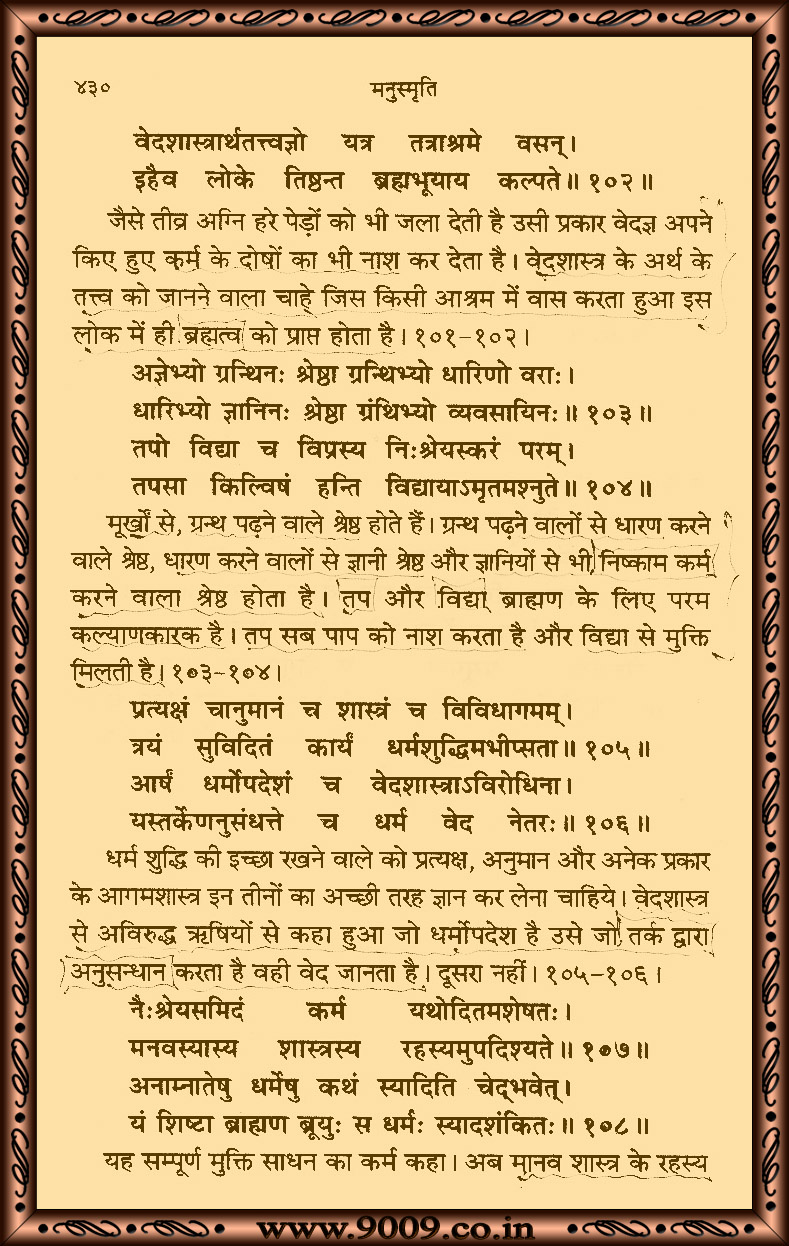 ४३० मनुस्मृति
वेदशास्त्रार्थतत्त्वज्ञो यत्र तत्राश्रमे वसन्।
इहैव लोके तिष्ठन्त ब्रह्मभूयाय कल्पते॥ १०२॥
जैसे तीव्र अग्नि हरे पेड़ों को भी जला देती है उसी प्रकार वेदज्ञ अपने
किए हुए कर्म के दोषों का भी नाश कर देता है। वेदशास्त्र के अर्थ के
तत्त्व को जानने वाला चाहे जिस किसी आश्रम में वास करता हुआ इस
लोक में ही ब्रह्मत्व को प्राप्त होता है। १०१-१०२।
अज्ञेभ्यो ग्रन्थिनः श्रेष्ठा ग्रन्थिभ्यो धारिणो वराः।
धारिभ्यो ज्ञानिनः श्रेष्ठा ग्रंथिभ्यो व्यवसायिनः॥ १०३॥
तपो विद्या च विप्रस्य निःश्रेयस्करं परम्।
तपसा किल्विषं हन्ति विद्यायाऽमृतमश्नुते॥ १०४॥
मूर्खों से, ग्रन्थ पढ़ने वाले श्रेष्ठ होते हैं। ग्रन्थ पढ़ने वालों से धारण करने
वाले श्रेष्ठ, धारण करने वालों से ज्ञानी श्रेष्ठ और ज्ञानियों से भी निष्काम कर्म
करने वाला श्रेष्ठ होता है। तप और विद्या ब्राह्मण के लिए परम
कल्याणकारक है। तप सब पाप को नाश करता है और विद्या से मुक्ति
मिलती है। १०३-१०४।
प्रत्यक्षं चानुमानं च शास्त्रं च विविधागमम्।
त्रयं सुविदितं कार्यं धर्मशुद्धिमभीप्सता॥ १०५॥
आर्षं धर्मोपदेशं च वेदशास्त्राऽविरोधिना।
यस्तर्केणनुसंधत्ते च धर्म वेद नेतरः॥ १०६॥
धर्म शुद्धि की इच्छा रखने वाले को प्रत्यक्ष, अनुमान और अनेक प्रकार
के आगमशास्त्र इन तीनों का अच्छी तरह ज्ञान कर लेना चाहिये। वेदशास्त्र
से अविरुद्ध ऋषियों से कहा हुआ जो धर्मोपदेश है उसे जो तर्क द्वारा
अनुसन्धान करता है वही वेद जानता है। दूसरा नहीं। १०५-१०६।
नैःश्रेयसमिदं कर्म यथोदितमशेषतः।
मनवस्यास्य शास्त्रस्य रहस्यमुपदिश्यते॥ १०७॥
अनाम्नातेषु धर्मेषु कथं स्यादिति चेद्भवेत्।
यं शिष्टा ब्राह्मण ब्रूयुः स धर्मः स्यादशंकितः॥ १०८॥
यह सम्पूर्ण मुक्ति साधन का कर्म कहा। अब मानव शास्त्र के रहस्य
www.9009.co.in